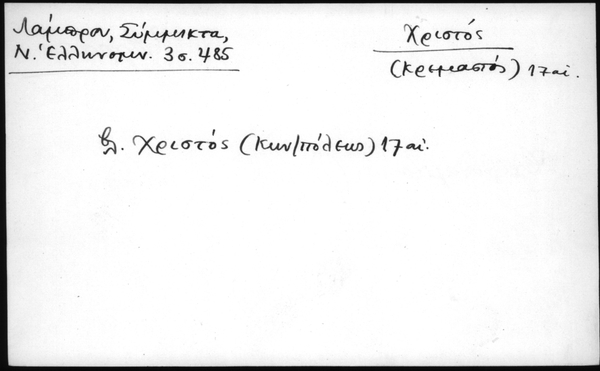 Λάμπρου, Σύμμικτα,
Ν. Ἑλληνομν. 3 σ. 485
Χριστός
(Κρεμαστός) 17 αἰ.
βλ. Χριστός (Κων/πόλεως) 17 αἰ.